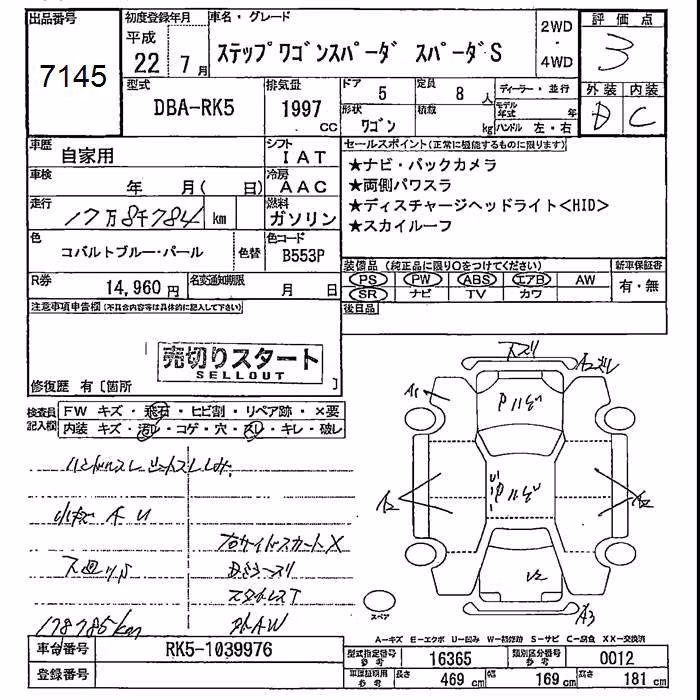 出品番号
7145
初度登録年月
平成
22 7月
車名・グレード
ステップワゴンスパーダ スパーダS
2WD
・
4WD
評価点
3
外装 内装
D C
型式
DBA-RK5
排気量
1997
cc
ドア
5
定員
8 人
ディーラー・並行
モデル年式 年
形状
ワゴン
積載
kg
ハンドル 左・右
車歴
自家用
シフト
IAT
車検
年 月( 日)
冷房
AAC
走行
17万8千784 km
燃料
ガソリン
色
コバルトブルー・パール
色替
色コード
B553P
R券
14,960円
名変通知期限
月 日
セールスポイント(正常に機能するものに限ります)
★ナビ・バックカメラ
★両側パワスラ
★ディスチャージヘッドライト<HID>
★スカイルーフ
装備品(純正品に限り○をつけてください)
PS PW ABS エアB AW
SR ナビ TV カワ
新車保証書
有・無
後日品
注意事項申告欄(不具合内容等は具体的に記入して下さい)
売切りスタート
SELLOUT
修復歴 有〔箇所 〕
検査員記入欄
FW キズ・飛石・ヒビ割・リペア跡・×要
内装 キズ・汚レ・コゲ・穴・スレ・キレ・破レ
小キズ A U
右サイドスカートX
178785km
下ズリ
A1
A2
A2
A3
スペア
A-キズ E-エクボ U-凹み W-補修跡 S-サビ C-腐食 XX-交換済
車台番号
RK5-1039976
登録番号
型式指定番号
参考
16365
類別区分番号
参考
0012
車庫証明用
参考
長さ 469 cm 幅 169 cm 高さ 181 cm